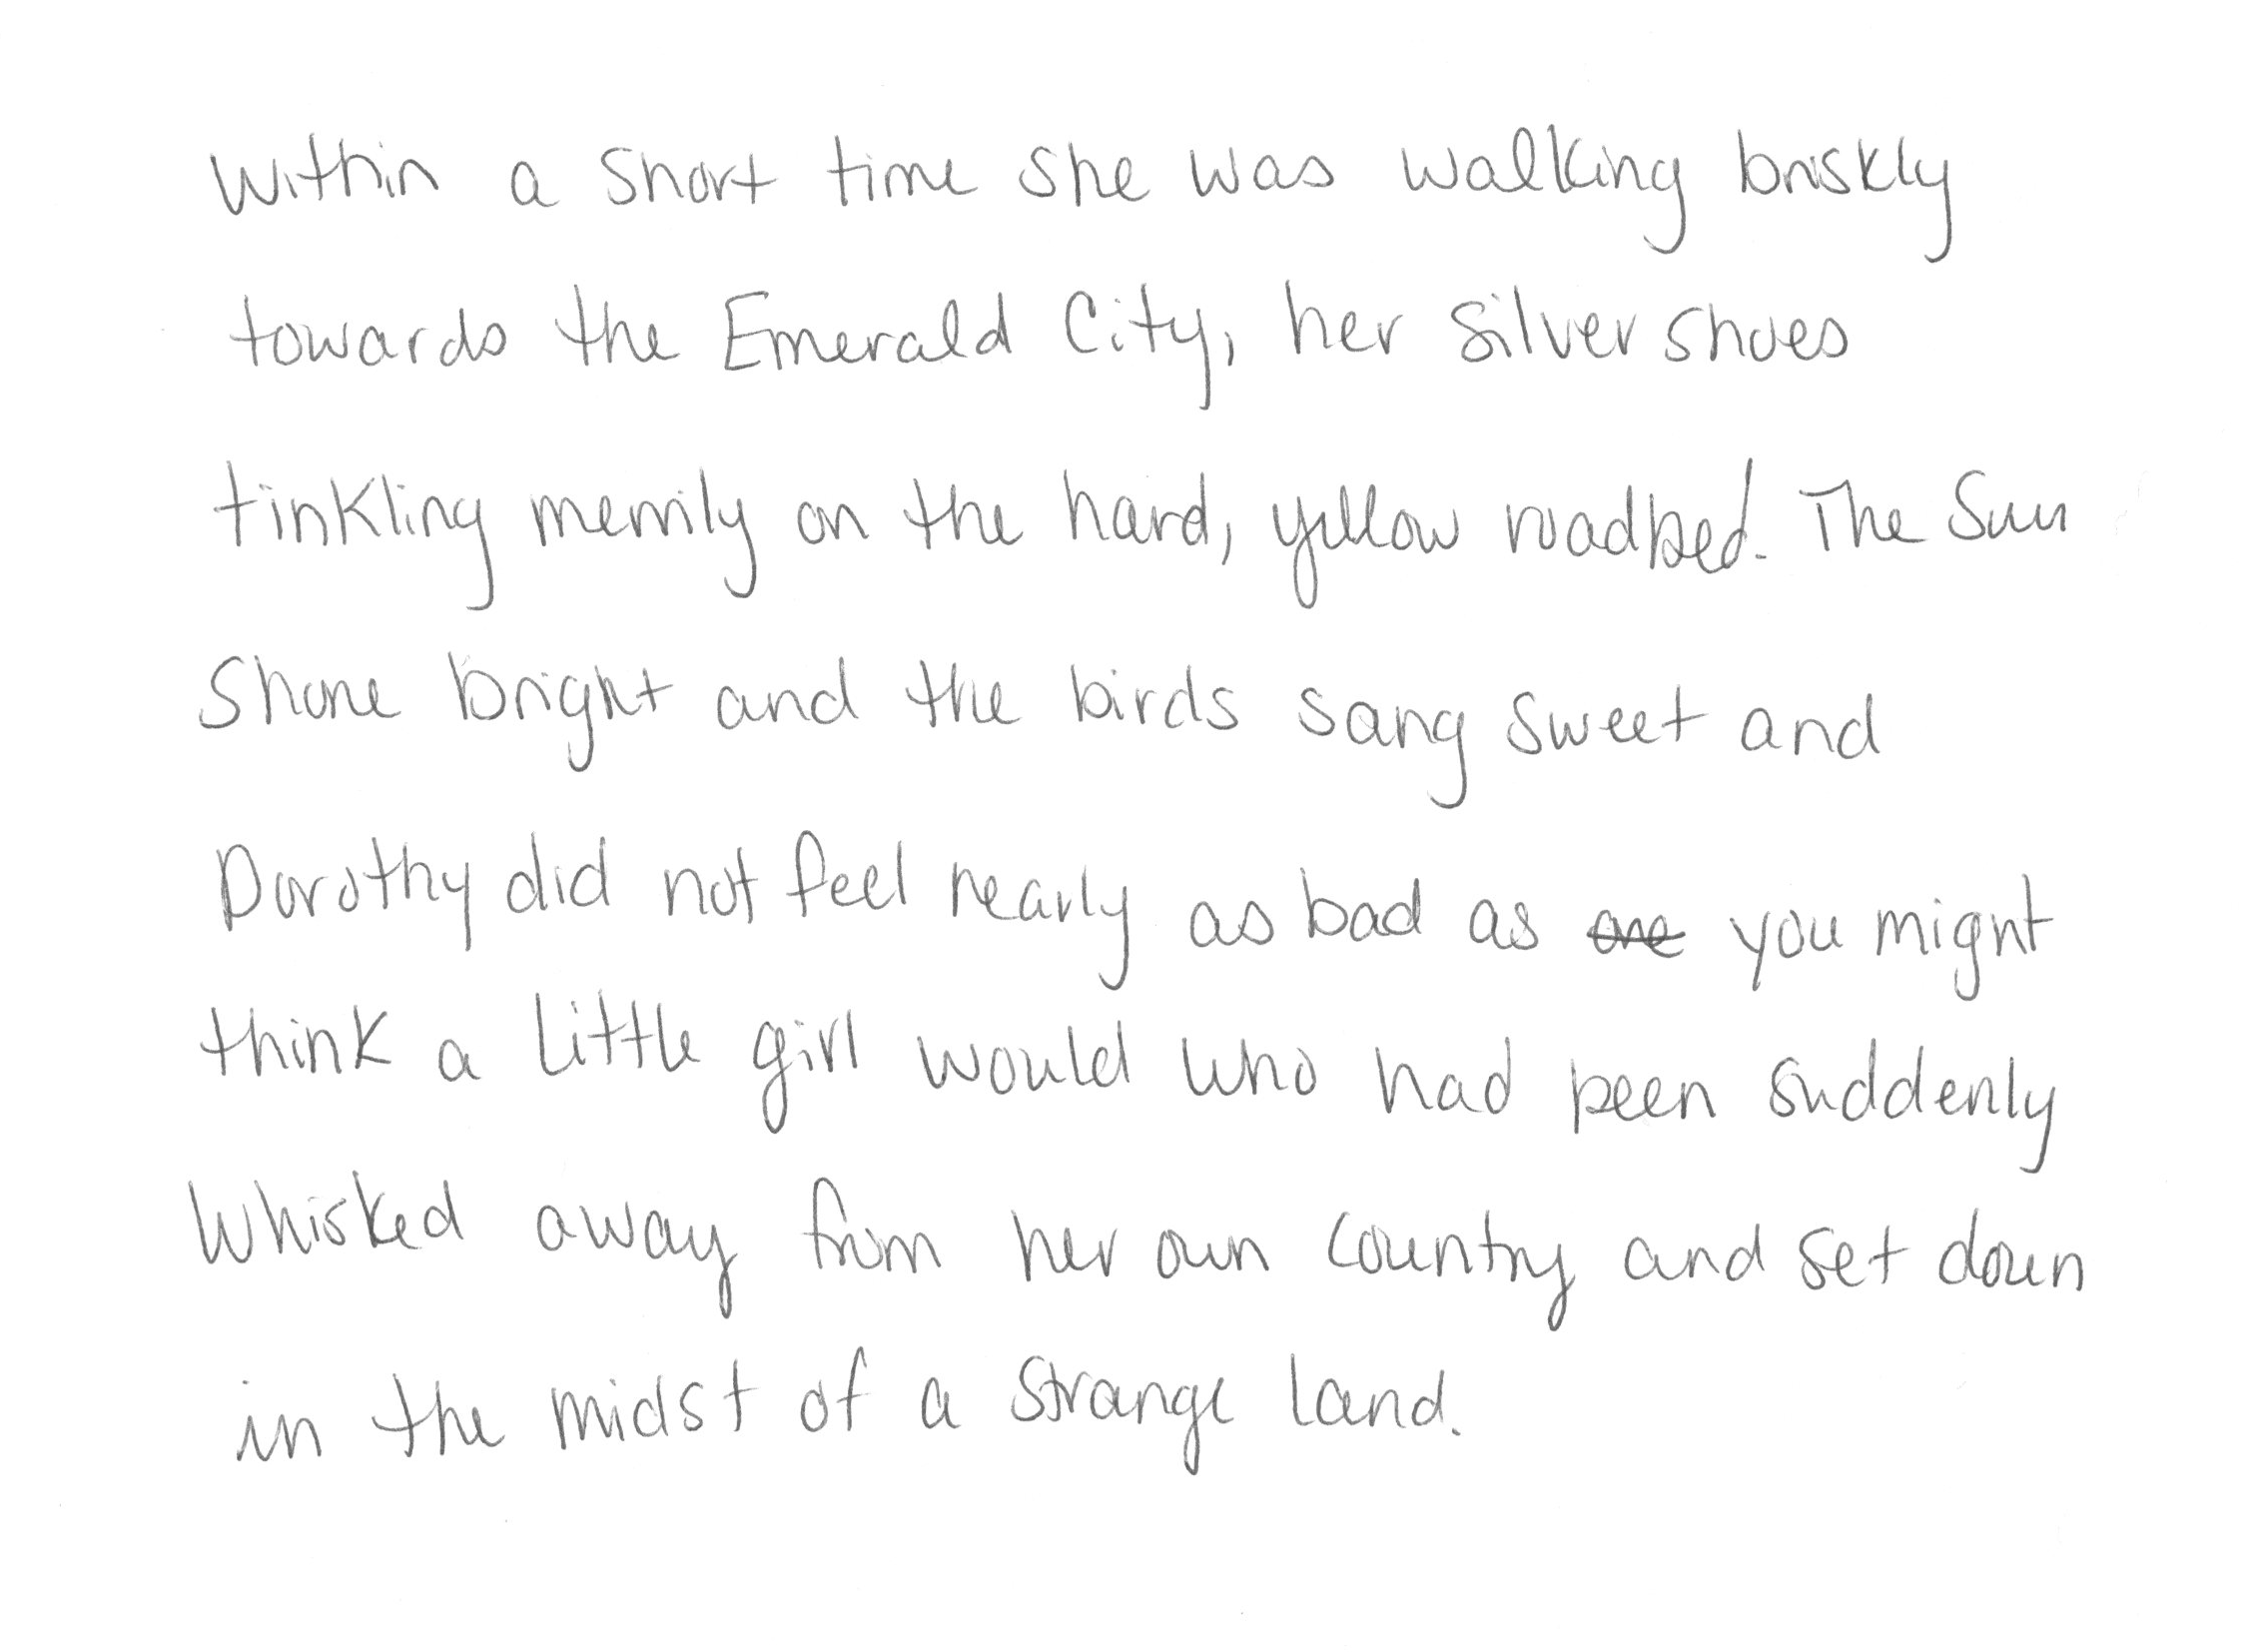 Within a short time she was walking briskly
towards the Emerald City, her silver shoes
tinkling merrily on the hard, yellow roadbed. The Sun
Shone bright and the birds sang sweet and
Dorothy did not feel nearly as bad as one you might
think a little girl would who had been suddenly
whisked away from her own country and set down
in the midst of a strange land.